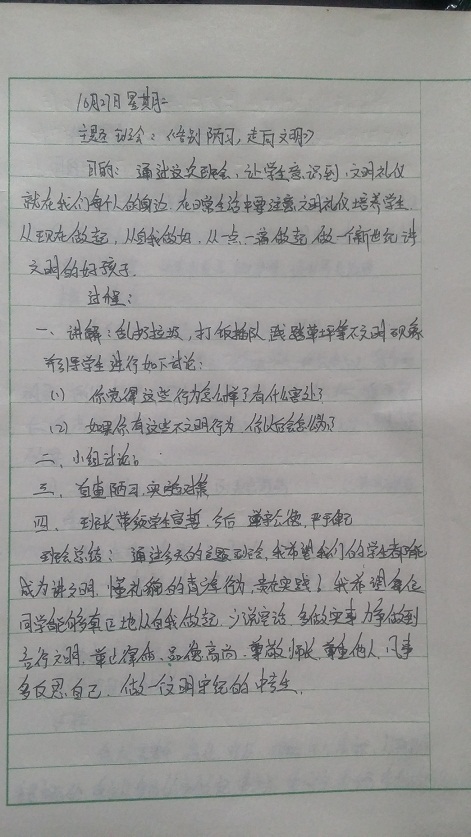 10月27日 星期二
主题班会：《告别陋习，走向文明》
目的：通过这次班会，让学生意识到，文明礼仪
就在我们每个人的身边，在日常生活中要注意文明礼仪，培养学生
从现在做起，从自我做起，从一点一滴做起，做一个新世纪讲
文明的好孩子。
过程：
一、讲解：乱扔垃圾，打饭插队，践踏草坪等不文明现象
并引导学生进行如下讨论：
(1) 你觉得这些行为怎么样？有什么害处？
(2) 如果你有这些不文明行为，你以后会怎么办？
二、小组讨论。
三、自查陋习，实施对策
四、班长带领学生宣誓，今后 遵守公德，严于律己
班会总结：通过今天的主题班会，我希望我们的学生都能
成为讲文明、懂礼貌的 行为，贵在实践！我希望每位
同学能够真正地从自我做起，少说空话，多做实事，力争做到
言行文明、 品德高尚、尊敬师长、尊重他人，凡事
多反思自己，做一文明守纪的中学生。